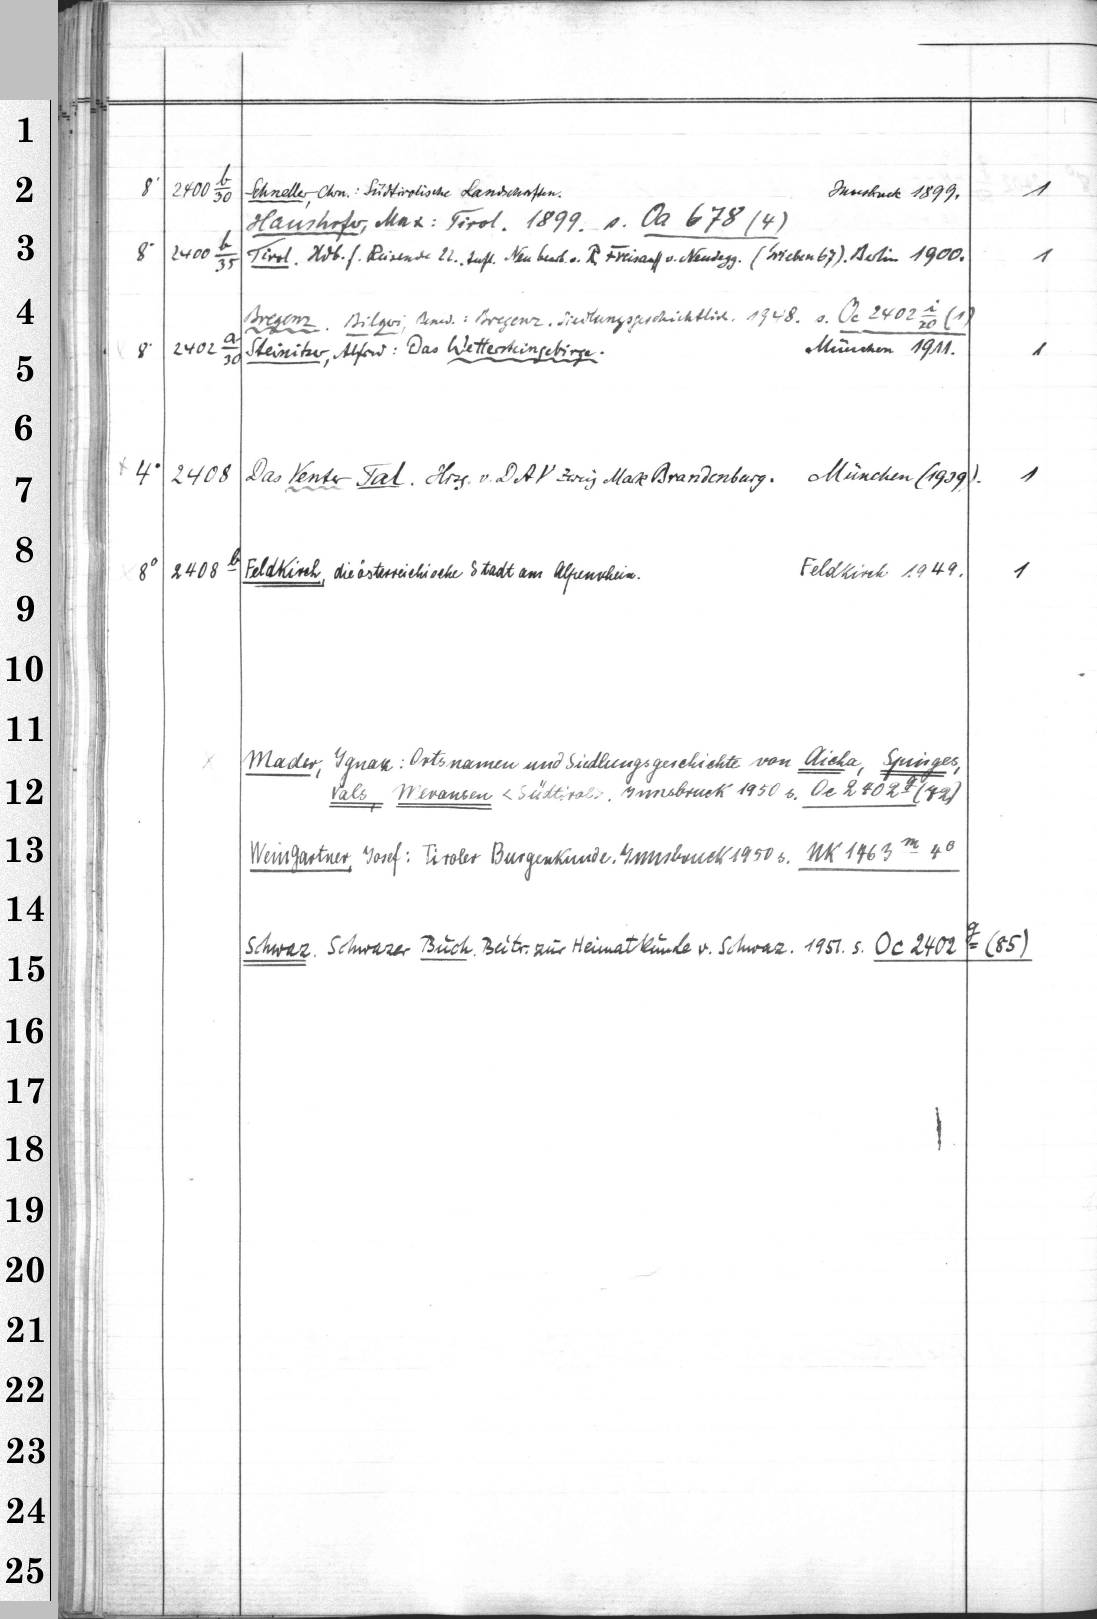 1
2
8° 2400 b/30 Schneller, Chn.: Südtirolische Landschaften. Innsbruck 1899. 1
Haushofer, Max: Tirol. 1899. s. Oa 678 (4)
3
8° 2400 b/35 Tirol. Hdb. f. Reisende 22. Aufl. Neu bearb. v. R. Freisauff v. Neudegg. (Grieben 67). Berlin 1900. 1
4
Bregenz. Bilgeri, Bened.: Bregenz. Siedlungsgeschichtlich. 1948. s. Oc 2402 i/20 (1)
8° 2402 a/30 Steinitzer, Alfred: Das Wettersteingebirge. München 1911. 1
5
6
7
4° 2408 Das Venter Tal. Hrsg. v. DAV Zweig Mark Brandenburg. München (1939). 1
8
8° 2408 b Feldkirch, die österreichische Stadt am Alpenrhein. Feldkirch 1949. 1
9
10
11
Mader, Ignaz: Ortsnamen und Siedlungsgeschichte von Aicha, Spinges,
12
Vals, Meransen <Südtirol>. Innsbruck 1950 s. Oc 2402 g (72)
13
Weingartner, Josef: Tiroler Burgenkunde. Innsbruck 1950 s. NK 1463 m 4°
14
Schwaz. Schwazer Buch. Beitr. zur Heimatkunde v. Schwaz. 1951. s. Oc 2402 g (85)
15
16
17
18
19
20
21
22
23
24
25